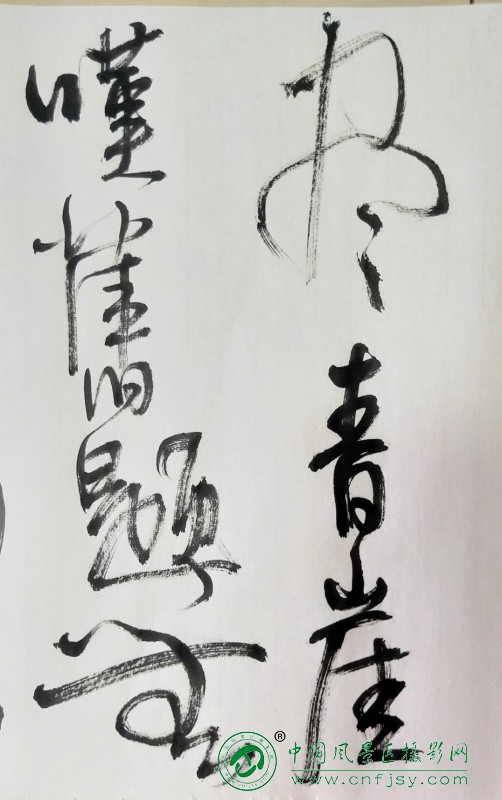 尽青崖
嘆舊題
® 中国风景区摄影网
www.cnfjsy.com